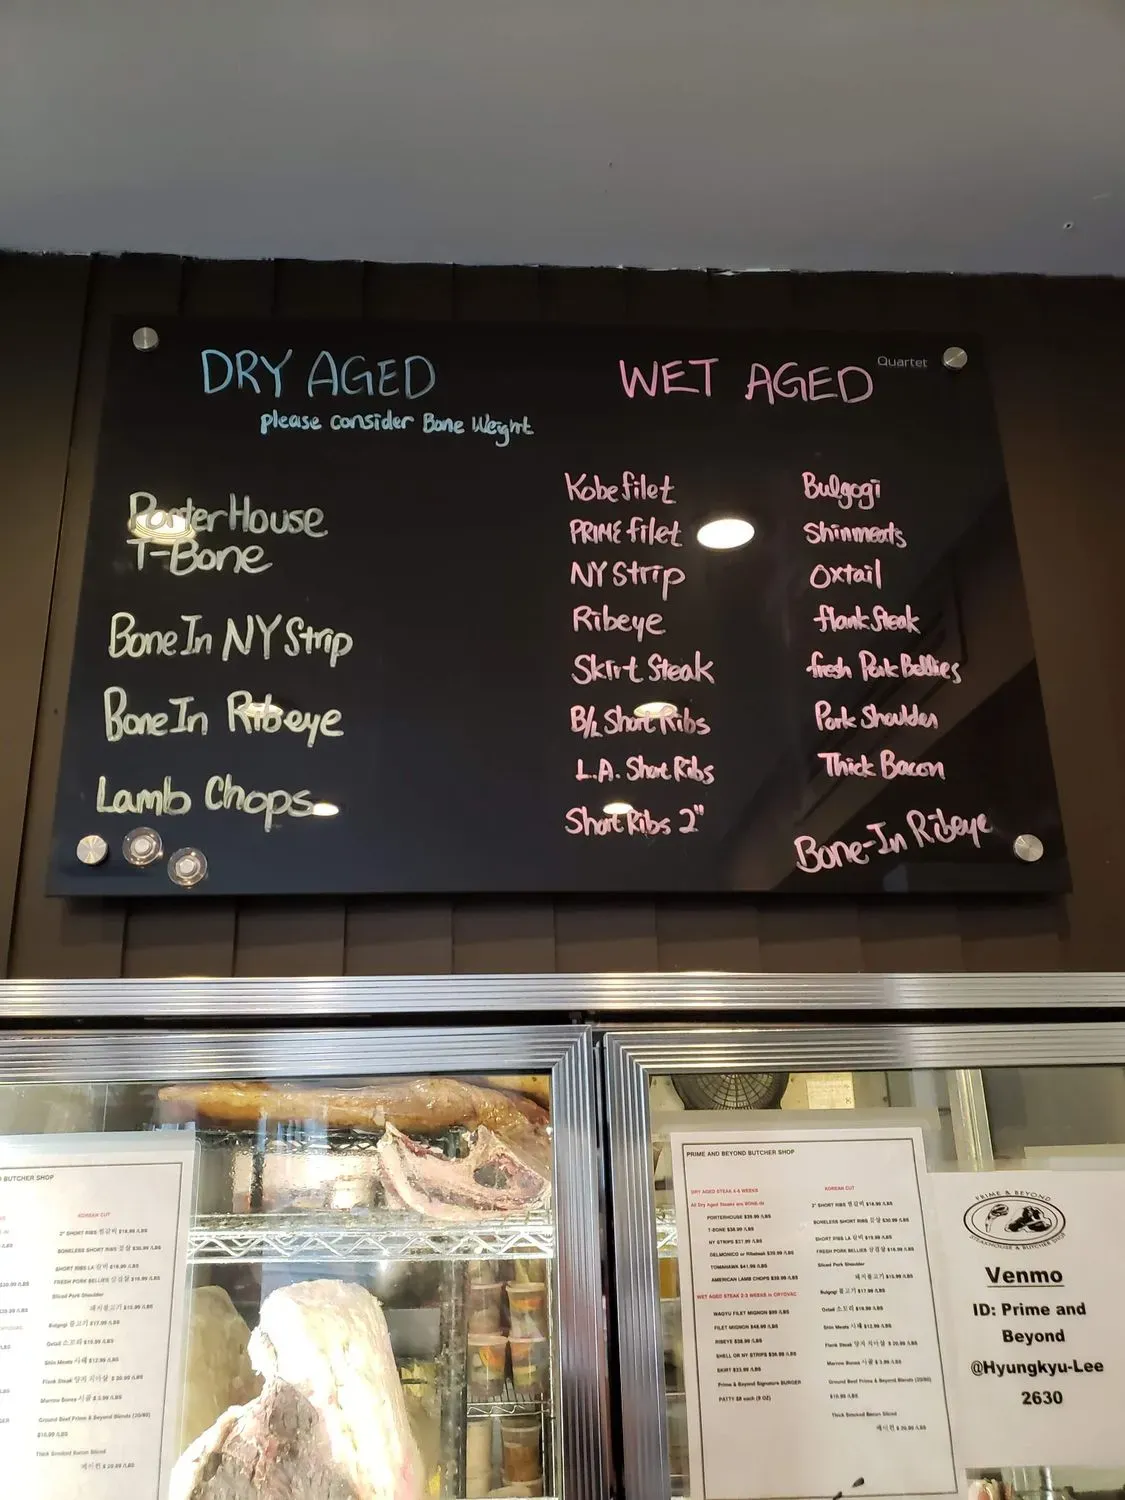 DRY AGED
please consider Bone Weight
PorterHouse
T-Bone
Bone In NY Strip
Bone In Ribeye
Lamb Chops
Quartet
WET AGED
Kobe filet
PRIME filet
NY Strip
Ribeye
Skirt Steak
B/L Short Ribs
L.A. Short Ribs
Short Ribs 2"
Bulgogi
Shinmeats
Oxtail
flank Steak
fresh Pork Bellies
Pork Shoulder
Thick Bacon
Bone-In Ribeye
BUTCHER SHOP
KOREAN CUT
2" SHORT RIBS 찜갈비 $18.99 /LBS
BONELESS SHORT RIBS $30.99 /LBS
SHORT RIBS LA 갈비 $19.99 /LBS
FRESH PORK BELLIES 삼겹살 $16.99 /LBS
Sliced Pork Shoulder
돼지불고기 $15.99 /LBS
Bulgogi 불고기 $17.99 /LBS
Oxtail 소꼬리 $19.99 /LBS
Shin Meats 사태 $12.99 /LBS
Flank Steak 양지 치마살 $ 20.99 /LBS
Marrow Bones 사골 $ 3.99 /LBS
Ground Beef Prime & Beyond Blends (20/80)
$10.99 /LBS
Thick Smoked Bacon Sliced
베이컨 $ 20.99 /LBS
PRIME AND BEYOND BUTCHER SHOP
DRY AGED STEAK 4-6 WEEKS
All Dry Aged Steaks are BONE-IN
PORTERHOUSE $39.99 /LBS
T-BONE $38.99 /LBS
NY STRIPS $37.99 /LBS
DELMONICO or Ribsteak $39.99 /LBS
TOMAHAWK $41.99 /LBS
AMERICAN LAMB CHOPS $39.99 /LBS
WET AGED STEAK 2-3 WEEKS in CRYOVAC
WAGYU FILET MIGNON $99 /LBS
FILET MIGNON $48.99 /LBS
RIBEYE $38.99 /LBS
SHELL OR NY STRIPS $36.99 /LBS
SKIRT $33.99 /LBS
Prime & Beyond Signature BURGER
PATTY $8 each (8 OZ)
KOREAN CUT
2" SHORT RIBS 찜갈비 $18.99 /LBS
BONELESS SHORT RIBS $30.99 /LBS
SHORT RIBS LA 갈비 $19.99 /LBS
FRESH PORK BELLIES 삼겹살 $16.99 /LBS
Sliced Pork Shoulder
돼지불고기 $15.99 /LBS
Bulgogi 불고기 $17.99 /LBS
Oxtail 소꼬리 $19.99 /LBS
Shin Meats 사태 $12.99 /LBS
Flank Steak 양지 치마살 $ 20.99 /LBS
Marrow Bones 사골 $ 3.99 /LBS
Ground Beef Prime & Beyond Blends (20/80)
$10.99 /LBS
Thick Smoked Bacon Sliced
베이컨 $ 20.99 /LBS
PRIME & BEYOND
STEAKHOUSE & BUTCHER SHOP
Venmo
ID: Prime and
Beyond
@Hyungkyu-Lee
2630